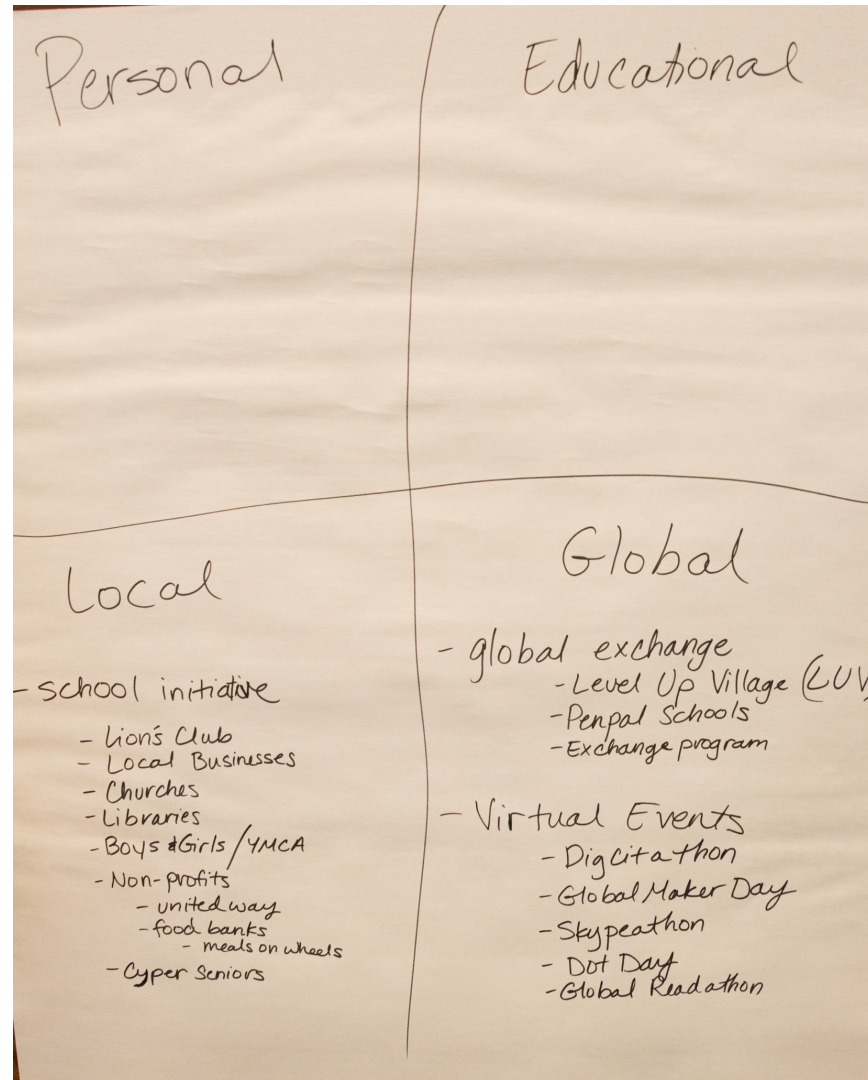 Personal
Educational
Local
- school initiative
- Lion's Club
- Local Businesses
- Churches
- Libraries
- Boys & Girls / YMCA
- Non-profits
- united way
- food banks
- meals on wheels
- Cyper Seniors
Global
- global exchange
- Level Up Village (LUV)
- Penpal Schools
- Exchange program
- Virtual Events
- Digcitathon
- Global Maker Day
- Skypeathon
- Dot Day
- Global Readathon